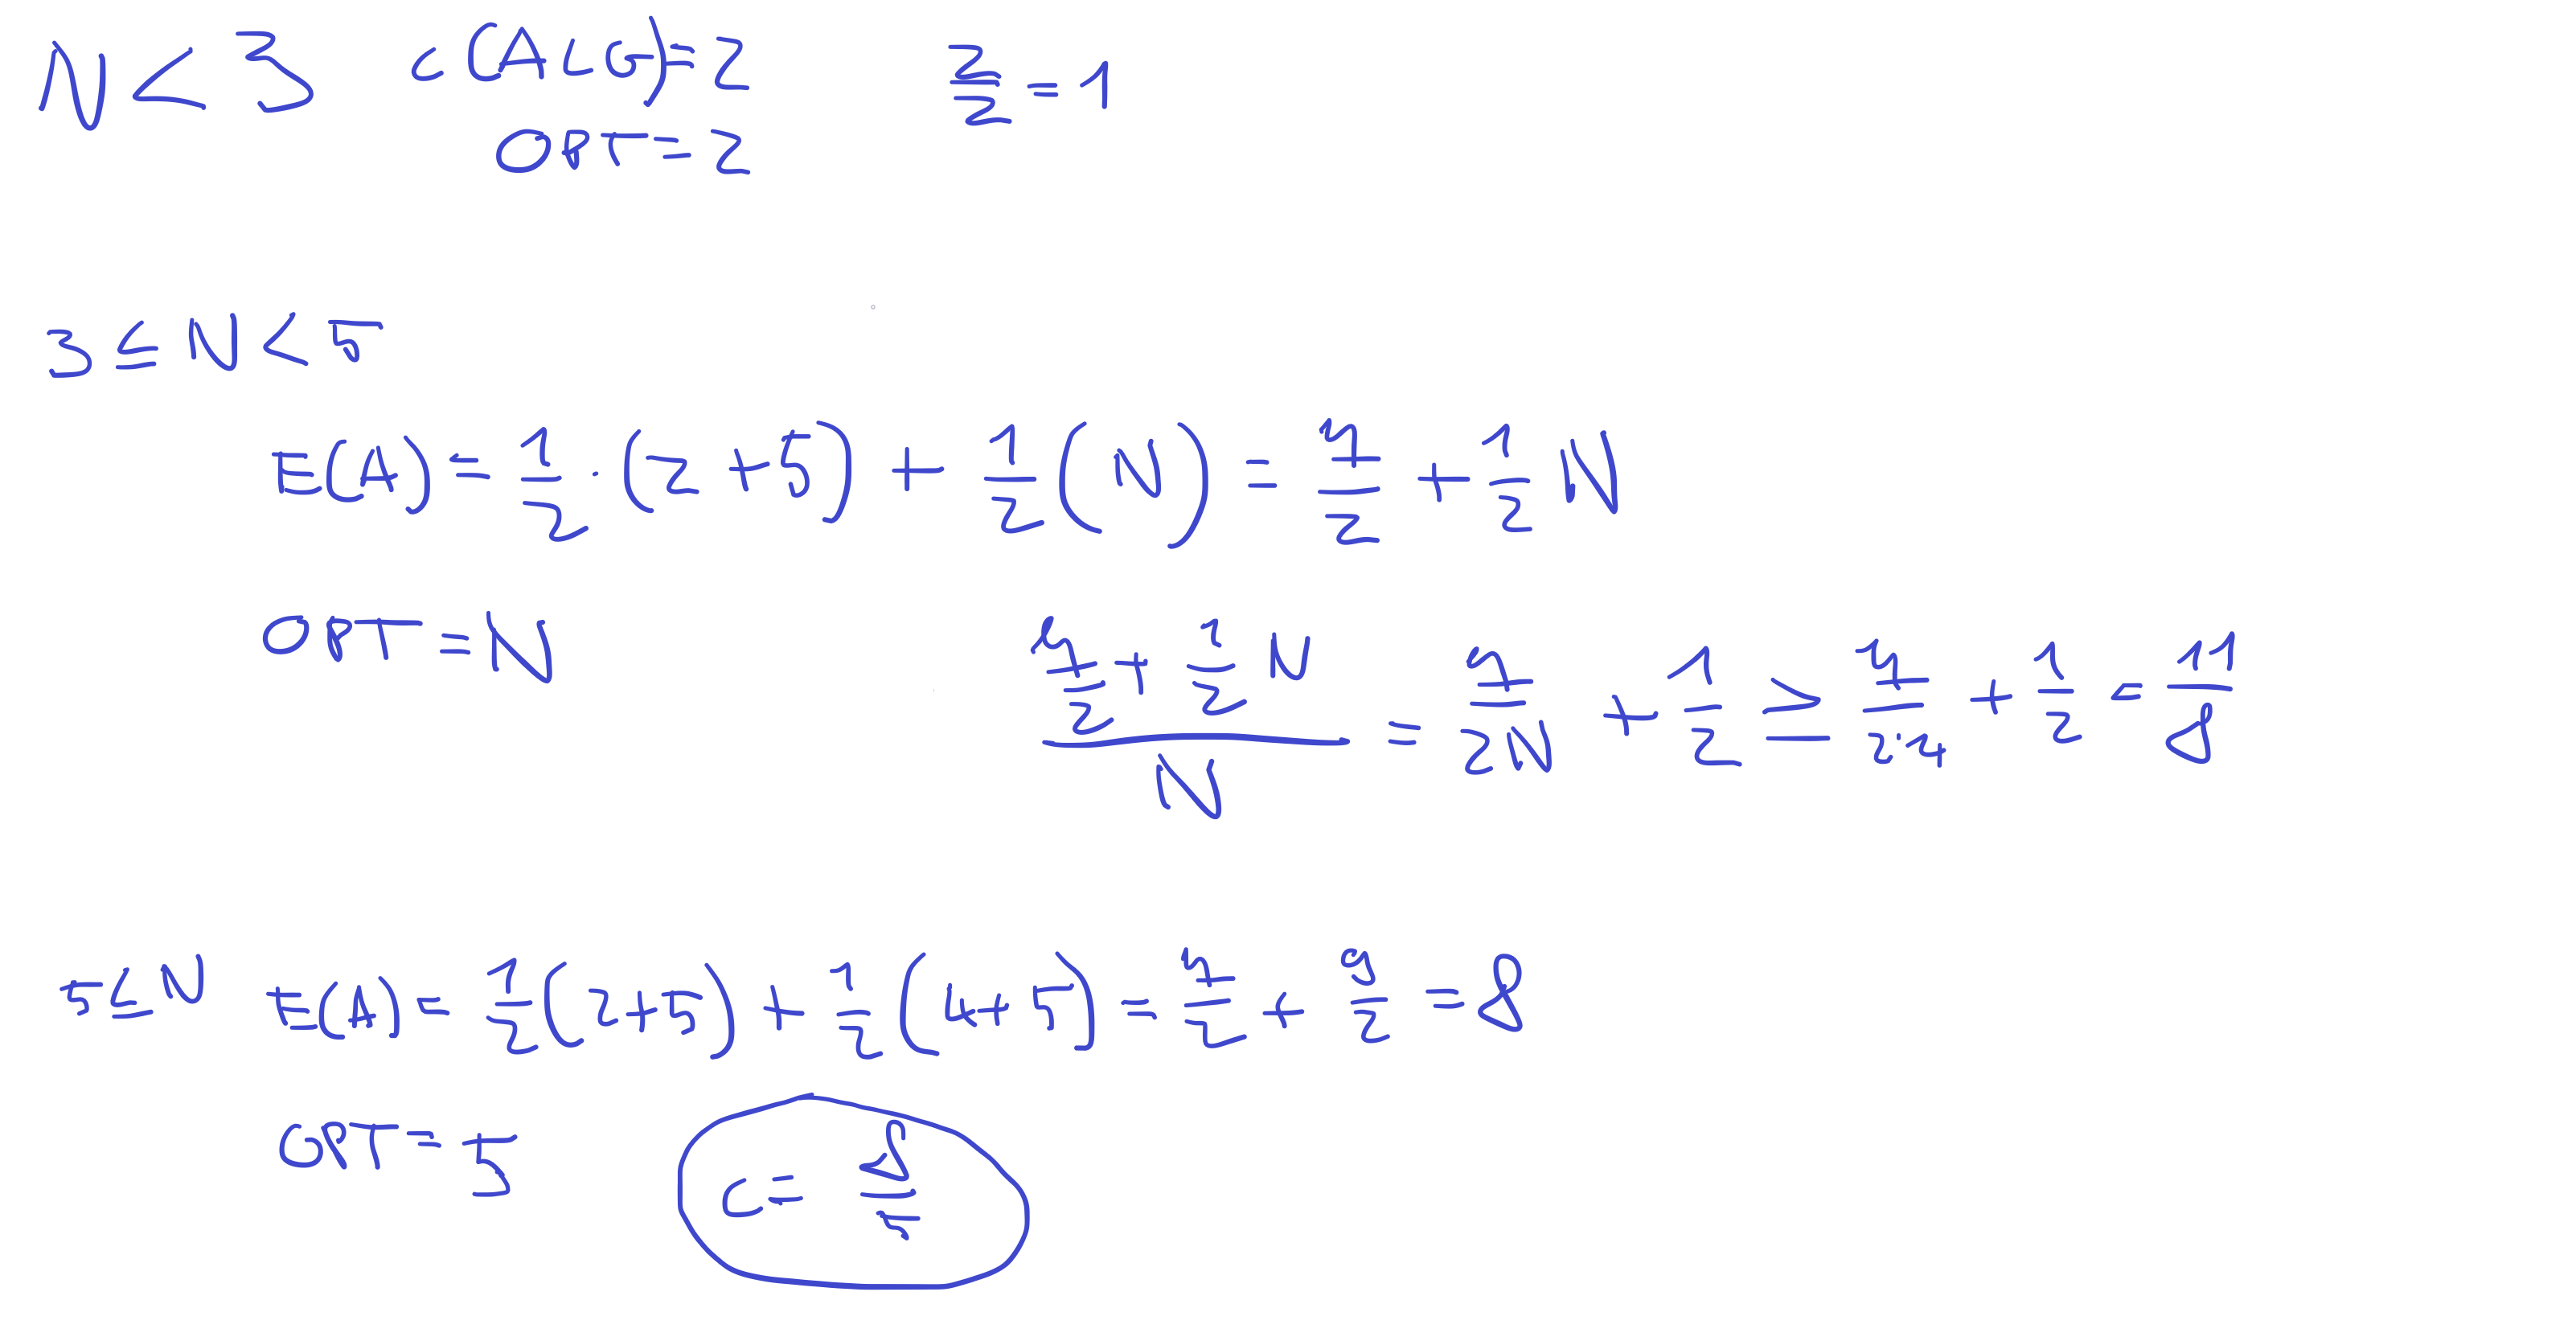 N < 3 c (ALG) = 2 2/2 = 1
OPT = 2
3 ≤ N < 5
E(A) = 1/2 · (2 + 5) + 1/2 (N) = 7/2 + 1/2 N
OPT = N (7/2 + 1/2 N)/N = 7/2N + 1/2 ≥ 7/2·4 + 1/2 = 11/8
5 ≤ N E(A) = 1/2 (2+5) + 1/2 (4+5) = 7/2 + 9/2 = 8
OPT = 5 c = 8/5